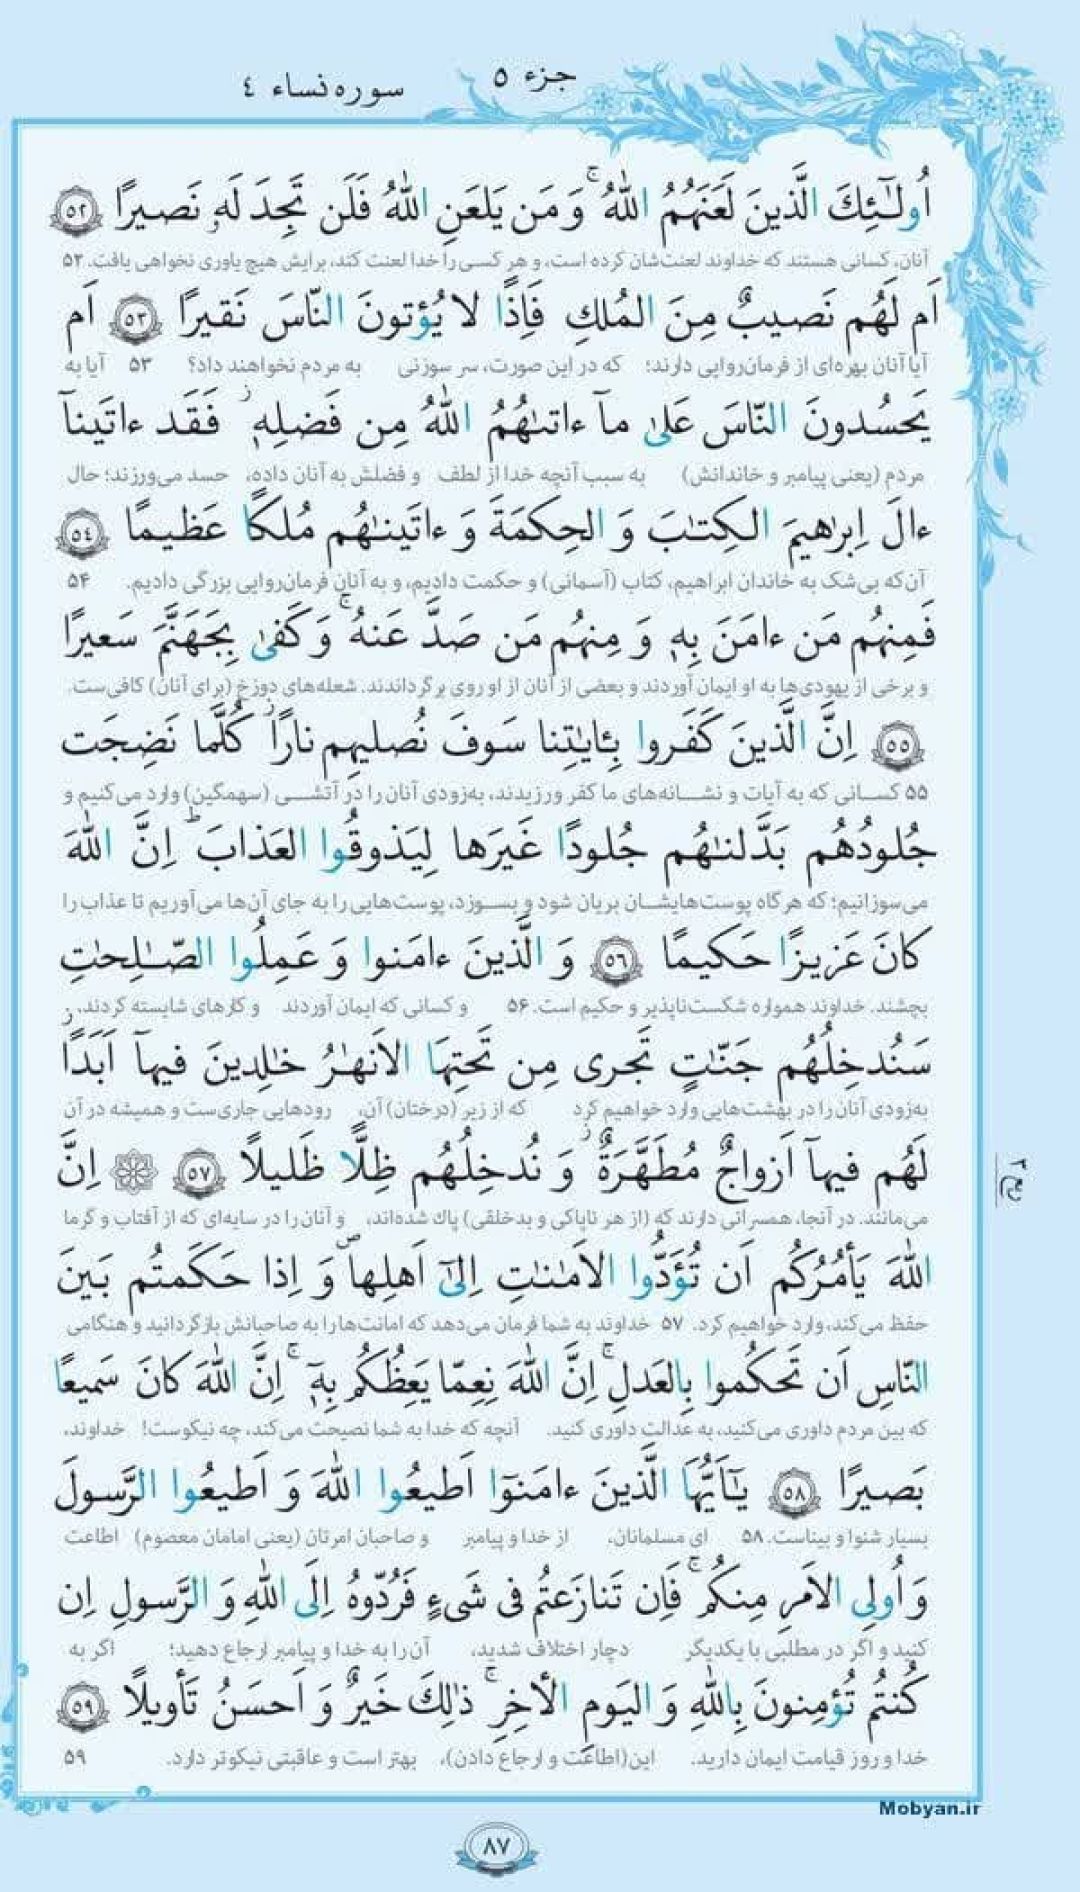 جزء ٥
سوره نساء ٤
اُولـٰٓئِكَ الَّذينَ لَعَنَهُمُ اللّٰهُ ۚ وَ مَن يَلعَنِ اللّٰهُ فَلَن تَجِدَ لَهٗ نَصيرًا ٥٢
آنان، کسانی هستند که خداوند لعنت‌شان کرده است، و هر کسی را خدا لعنت کند، برایش هیچ یاوری نخواهی یافت. ۵۲
اَم لَهُم نَصيبٌ مِنَ المُلكِ فَاِذًا لا يُؤتونَ النّاسَ نَقيرًا ٥٣ اَم
آیا آنان بهره‌ای از فرمان‌روایی دارند؛ که در این صورت، سر سوزنی به مردم نخواهند داد؟ ۵۳ آیا به
يَحسُدونَ النّاسَ عَلىٰ مآ ءاتىٰهُمُ اللّٰهُ مِن فَضلِهٖ ۖ فَقَد ءاتَينآ
مردم (یعنی پیامبر و خاندانش) به سبب آنچه خدا از لطف و فضلش به آنان داده، حسد می‌ورزند؛ حال
ءالَ اِبرٰهيمَ الكِتـٰبَ وَ الحِكمَةَ وَ ءاتَينـٰهُم مُلكًا عَظيمًا ٥٤
آن‌که بی‌شک به خاندان ابراهیم، کتاب (آسمانی) و حکمت دادیم، و به آنان فرمان‌روایی بزرگی دادیم. ۵۴
فَمِنهُم مَن ءامَنَ بِهٖ وَ مِنهُم مَن صَدَّ عَنهُ ۚ وَ كَفىٰ بِجَهَنَّمَ سَعيرًا
و برخی از یهودی‌ها به او ایمان آوردند و بعضی از آنان از او روی برگرداندند. شعله‌های دوزخ (برای آنان) کافی‌ست.
٥٥ اِنَّ الَّذينَ كَفَروا بِـٔايٰتِنا سَوفَ نُصليهِم نارًا كُلَّما نَضِجَت
۵۵ کسانی که به آیات و نشانه‌های ما کفر ورزیدند، به‌زودی آنان را در آتشی (سهمگین) وارد می‌کنیم و
جُلودُهُم بَدَّلنـٰهُم جُلودًا غَيرَها لِيَذوقُوا العَذابَ ۗ اِنَّ اللّٰهَ
می‌سوزانیم؛ که هرگاه پوست‌هایشان بریان شود و بسوزد، پوست‌هایی را به جای آن‌ها می‌آوریم تا عذاب را
كانَ عَزيزًا حَكيمًا ٥٦ وَ الَّذينَ ءامَنوا وَ عَمِلُوا الصّـٰلِحٰتِ
بچشند. خداوند همواره شکست‌ناپذیر و حکیم است. ۵۶ و کسانی که ایمان آوردند و کارهای شایسته کردند،
سَنُدخِلُهُم جَنّـٰتٍ تَجرى مِن تَحتِهَا الاَنهٰرُ خـٰلِدينَ فيهآ اَبَدًا
به‌زودی آنان را در بهشت‌هایی وارد خواهیم کرد که از زیر (درختان) آن، رودهایی جاری‌ست و همیشه در آن
لَهُم فيهآ اَزواجٌ مُطَهَّرَةٌ وَ نُدخِلُهُم ظِلًّا ظَليلًا ٥٧ اِنَّ
می‌مانند. در آنجا، همسرانی دارند که (از هر ناپاکی و بدخلقی) پاک شده‌اند، و آنان را در سایه‌ای که از آفتاب و گرما
اللّٰهَ يَأمُرُكُم اَن تُؤَدُّوا الاَمٰنـٰتِ اِلىٰٓ اَهلِها وَ اِذا حَكَمتُم بَينَ
حفظ می‌کند، وارد خواهیم کرد. ۵۷ خداوند به شما فرمان می‌دهد که امانت‌ها را به صاحبانش بازگردانید و هنگامی
النّاسِ اَن تَحكُموا بِالعَدلِ ۚ اِنَّ اللّٰهَ نِعِمّا يَعِظُكُم بِهٖٓ ۚ اِنَّ اللّٰهَ كانَ سَميعًا
که بین مردم داوری می‌کنید، به عدالت داوری کنید. آنچه که خدا به شما نصیحت می‌کند، چه نیکوست! خداوند،
بَصيرًا ٥٨ يـٰٓاَيُّهَا الَّذينَ ءامَنوٓا اَطيعُوا اللّٰهَ وَ اَطيعُوا الرَّسولَ
بسیار شنوا و بیناست. ۵۸ ای مسلمانان، از خدا و پیامبر و صاحبان امرتان (یعنی امامان معصوم) اطاعت
وَ اُولِى الاَمرِ مِنكُم ۚ فَاِن تَنازَعتُم فى شَىءٍ فَرُدّوهُ اِلَى اللّٰهِ وَ الرَّسولِ اِن
کنید و اگر در مطلبی با یکدیگر دچار اختلاف شدید، آن را به خدا و پیامبر ارجاع دهید؛ اگر به
كُنتُم تُؤمِنونَ بِاللّٰهِ وَ اليَومِ الأخِرِ ۚ ذٰلِكَ خَيرٌ وَ اَحسَنُ تَأويلًا ٥٩
خدا و روز قیامت ایمان دارید. این (اطاعت و ارجاع دادن)، بهتر است و عاقبتی نیکوتر دارد. ۵۹
Mobyan.ir
٨٧